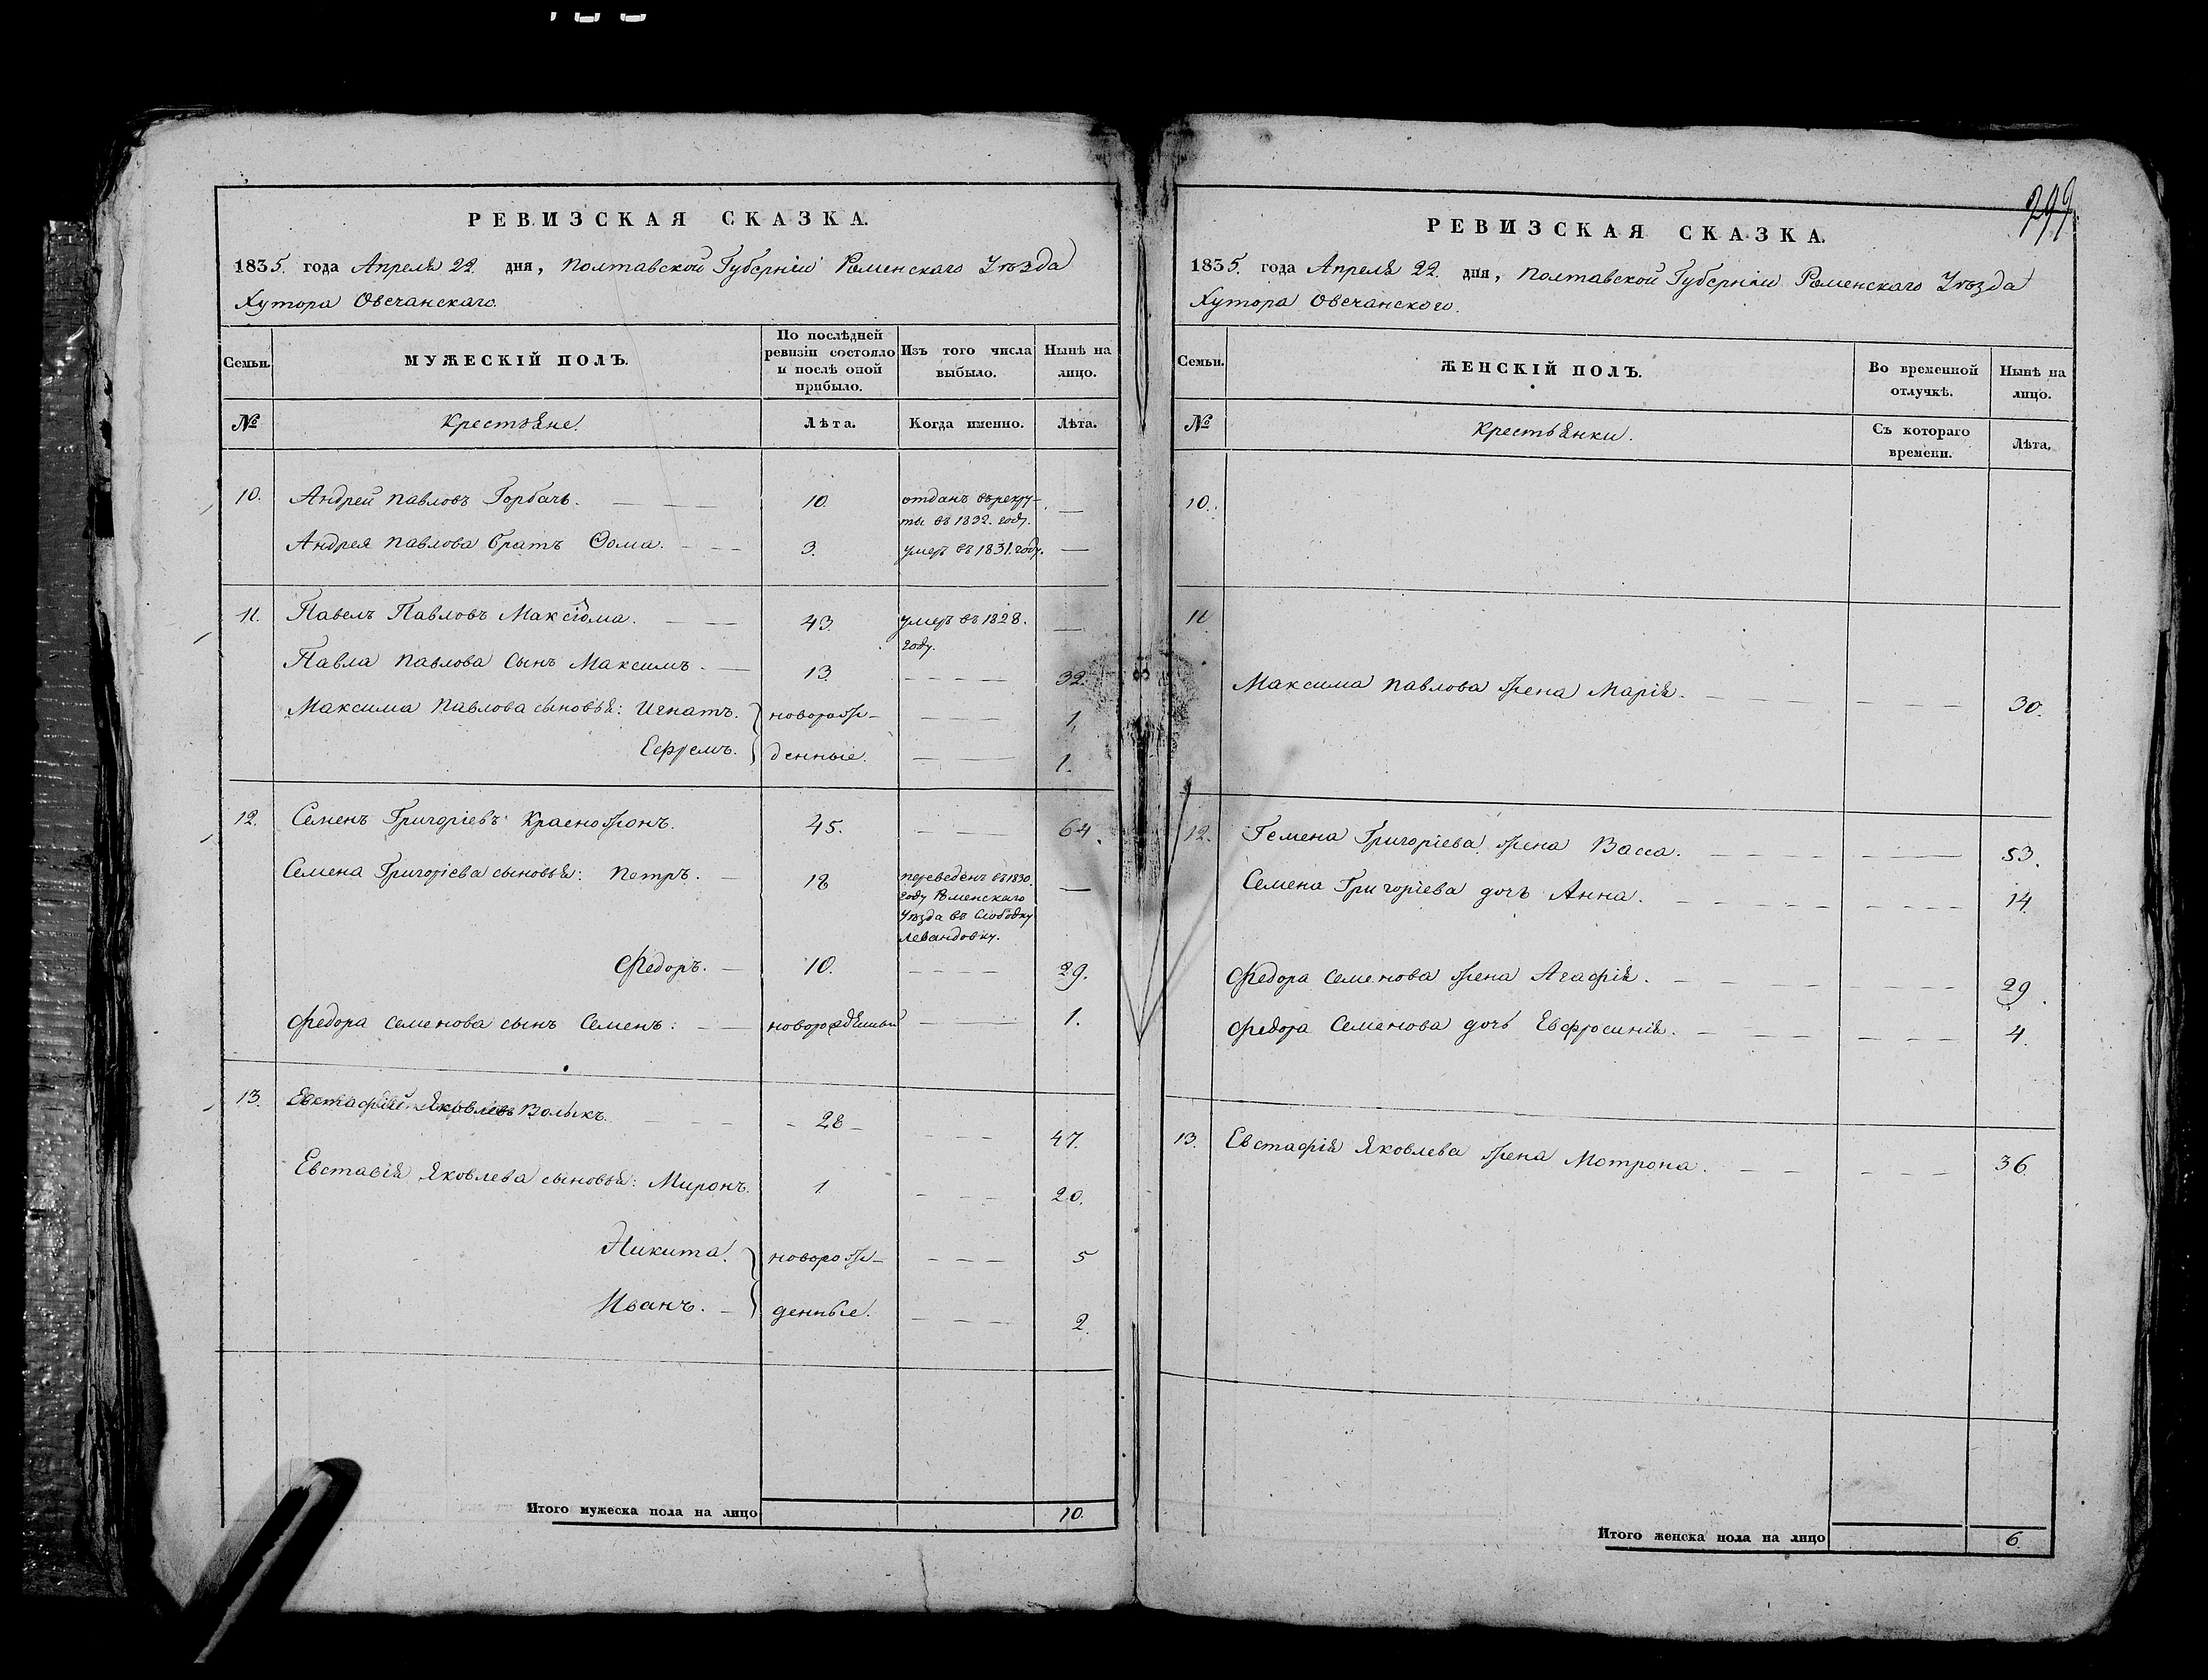 РЕВИЗСКАЯ СКАЗКА.
1835. года Апреля 22. дня, Полтавской Губерніи Роменскаго Уѣзда
Хутора Овечанскаго.
Семьи. МУЖЕСКІЙ ПОЛЪ. По послѣдней ревизіи состояло и послѣ оной прибыло. Изъ того числа выбыло. Нынѣ на лицо.
№ Крестьяне. Лѣта. Когда именно. Лѣта.
10. Андрей Павловъ Горбачь. 10. отданъ въ рекру-
ты въ 1832. году. —
Андрея Павлова братъ Ѳома. 3. умеръ въ 1831. году. —
11. Павелъ Павловъ 43. умеръ въ 1828.
году. —
Павла Павлова сынъ Максимъ. 13. 32.
Максима Павлова сыновья: Игнатъ. новорож- 1.
Ефремъ. денные. 1.
12. Семенъ Григоріевъ Красножонъ. 45. 64.
Семена Григоріева сыновья: Петръ. 18 переведенъ въ 1830.
году Роменскаго
Уѣзда въ Слободку
Левандовку. —
Федоръ. 10. 29.
Федора Семенова сынъ Семенъ: новорожденный 1.
13. Евстафій Яковлевъ Волыкъ. 28 47.
Евставія Яковлева сыновья: Миронъ. 1. 20.
Никита. новорож- 5
Иванъ. денные. 2.
Итого мужеска пола на лицо 10.
299.
РЕВИЗСКАЯ СКАЗКА.
1835. года Апреля 22. дня, Полтавской Губерніи Роменскаго Уѣзда
Хутора Овечанского.
Семьи. ЖЕНСКІЙ ПОЛЪ. Во временной отлучкѣ. Нынѣ на лицо.
№ Крестьянки. Съ котораго времени. Лѣта.
10.
11.
Максима Павлова жена Марія. 30.
12. Семена Григоріева жена Васса. 53.
Семена Григоріева дочъ Анна. 14.
Федора Семенова жена Агафія. 29.
Федора Семенова дочь Евфросинія. 4.
13. Евстафія Яковлева жена Мотрона. 36.
Итого женска пола на лицо 6.